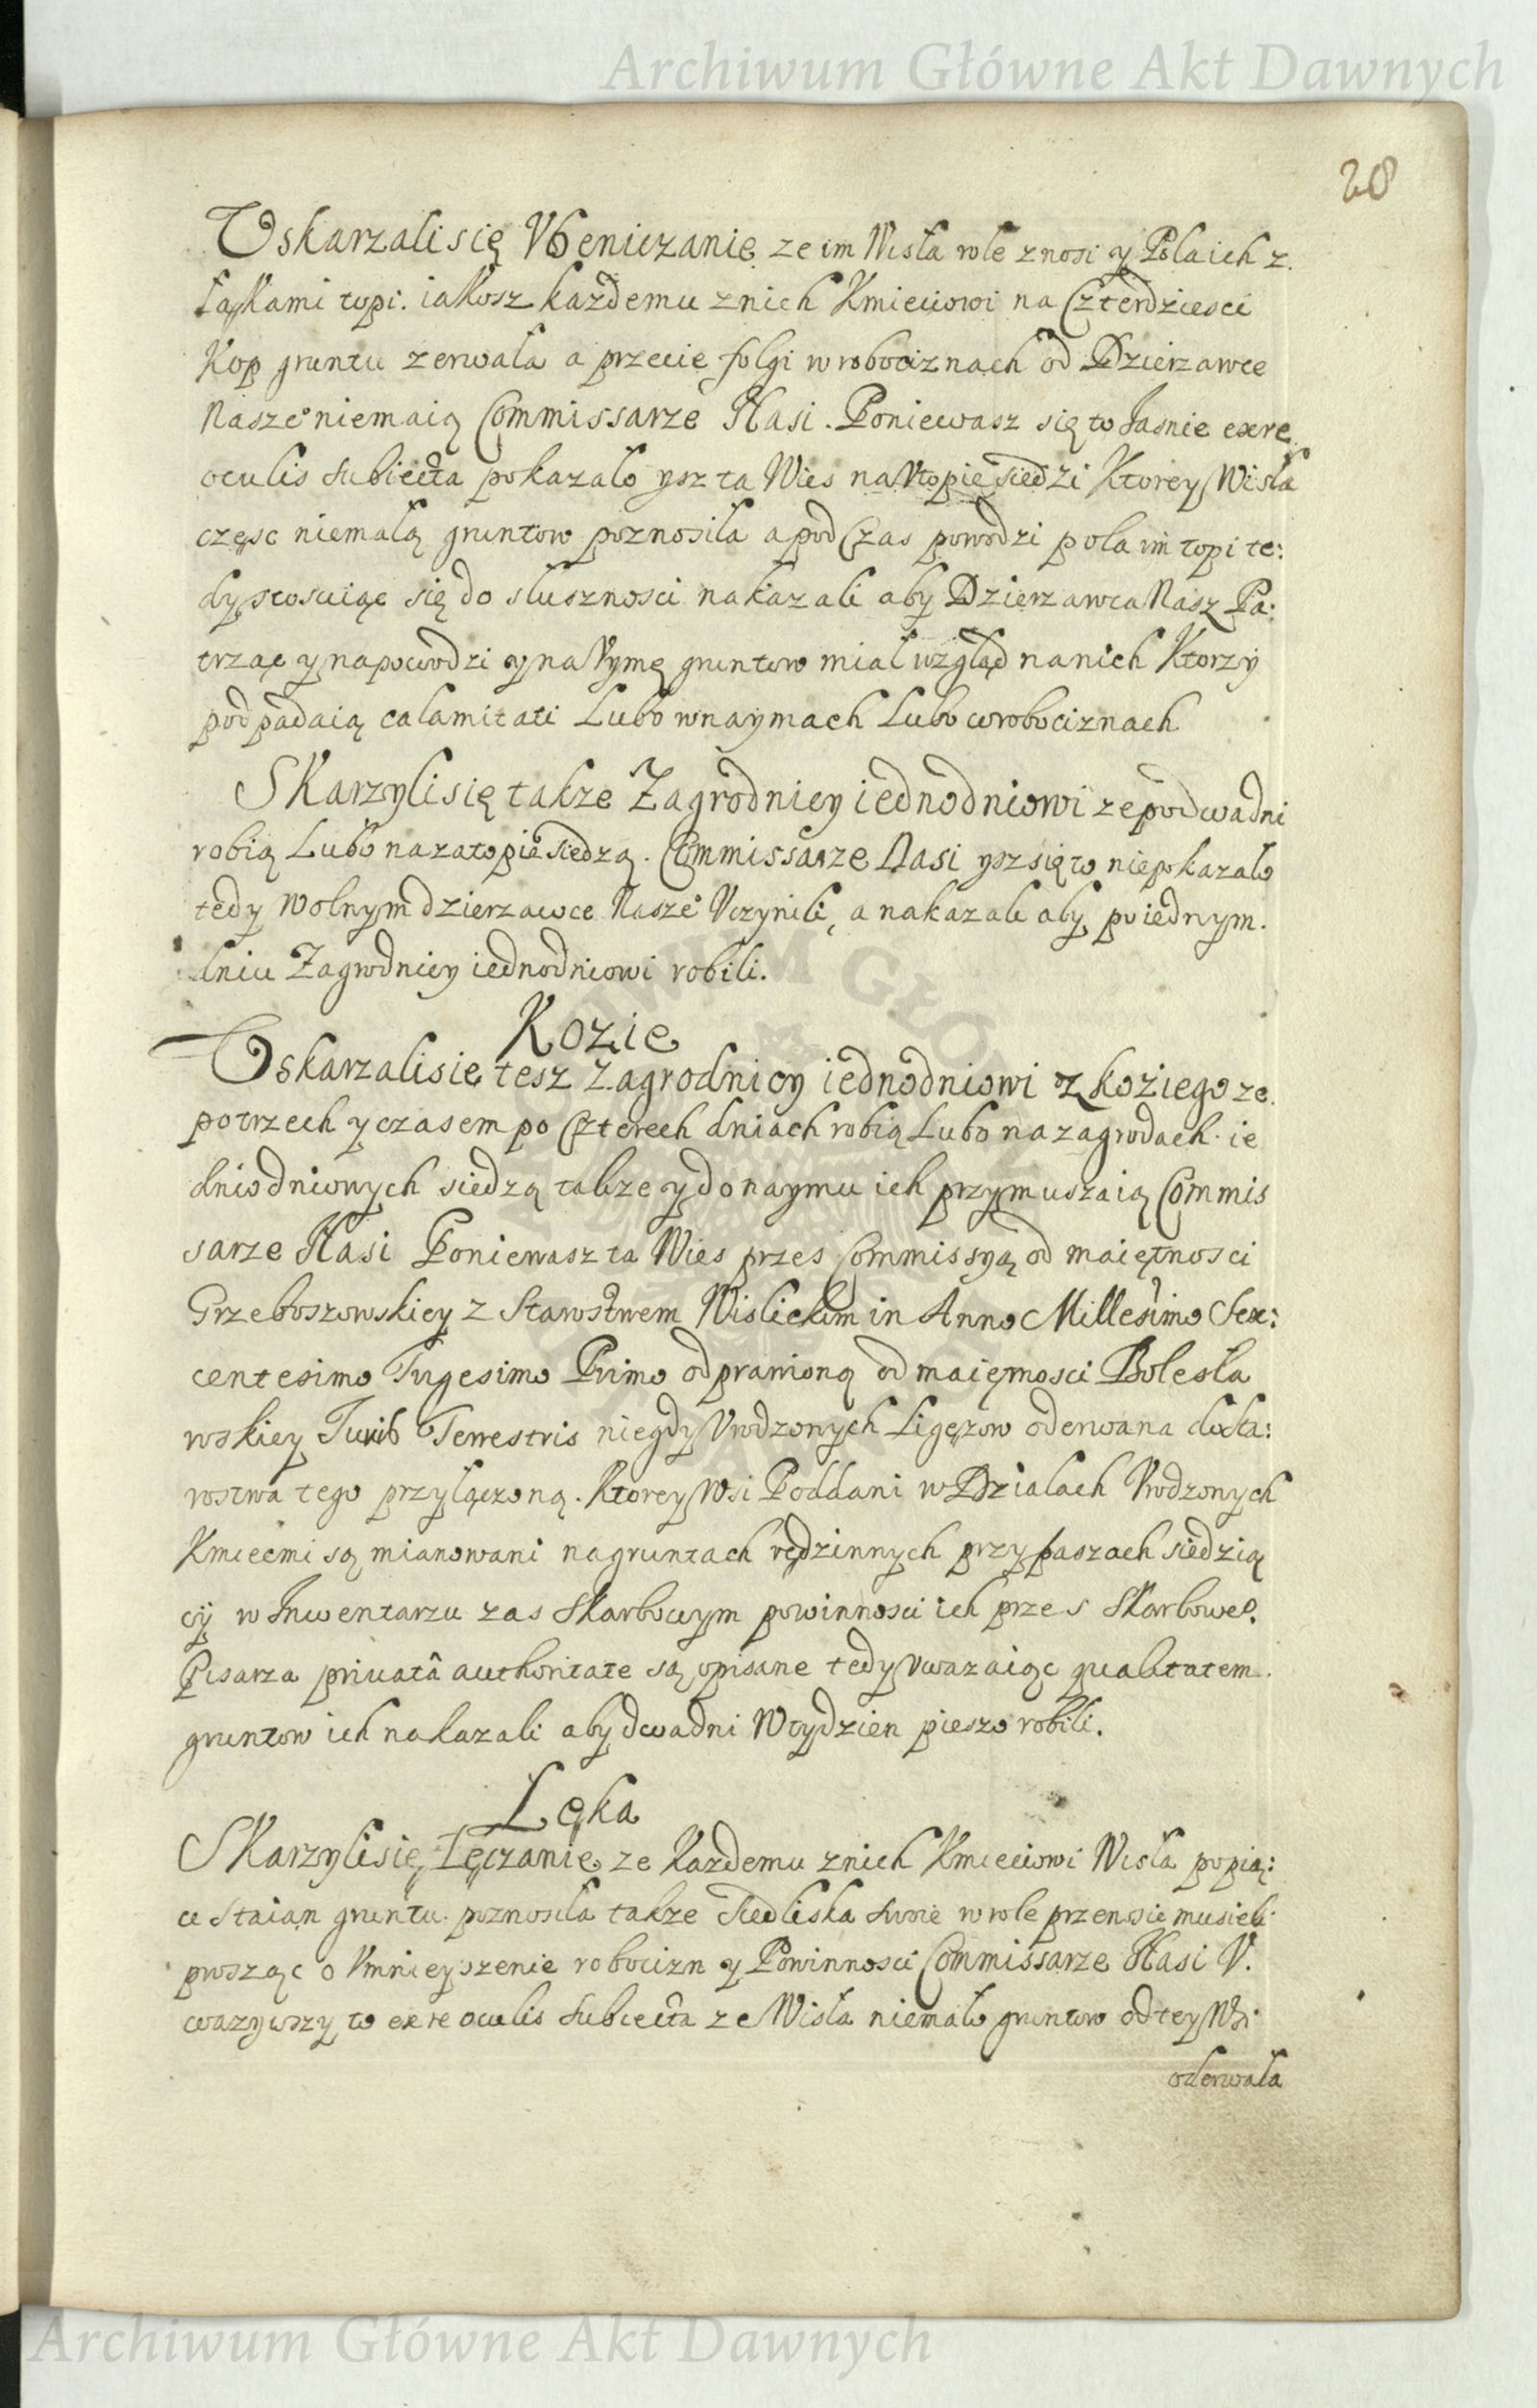 Archiwum Główne Akt Dawnych
28
Uskarzali się Vbeniczanie ze im Wisła role znosi y Pola ich z
łąkami topi. iakosz kazdemu z nich Kmieciowi na Czterdziesci
Kop gruntu zerwała a przecie folgi w robociznach od Dzierzawce
Nasze° niemaią Commissarze Nasi. Poniewasz się to Jasnie ex re
oculis subiecta pokazało ysz ta Wies na Vtopie siedzi Ktorey Wisła
częsc niemałą gruntow poznosiła a pod Czas powodzi pola im topi te:
dy stosuiąc się do słusznosci nakazali aby Dzierzawca Nasz Pa:
trząc y na powodzi y na Vymę gruntow miał wzgląd na nich Ktorzy
podpadaią calamitati Lubo w naymach Lubo w robociznach
Skarzyli się takze Zagrodnicy iednodniowi ze po dwa dni
robią Lubo na zatopie siedzą. Commissarze Nasi ysz się to nie pokazało
tedy Wolnym dzierzawce Nasze° Vczynili, a nakazali aby po iednym
dniu Zagrodnicy iednodniowi robili.
Kozie
Uskarzali sie tesz Zagrodnicy iednodniowi z koziego ze
po trzech y czasem po Czterech dniach robią Lubo na zagrodach ie
dniodniowych siedzą takze y do naymu ich przymuszaią Commis
sarze Nasi Poniewasz ta Wies przes Commissyą od maiętnosci
Grzeboszowskiey z Starostwem Wislickim in Anno Millesimo Sex:
centesimo Trigesimo Primo odprawioną od maiętnosci Bolesła
wskiey Juris Terrestris niegdy Vrodzonych Ligęzow oderwana do sta:
rostwa tego przyłączoną. Ktorey Wsi Poddani w Działach Vrodzonych
Kmiecmi są mianowani na gruntach rędzinnych przy paszach siedzią
cÿ w Inwentarzu zas Skarbowym powinnosci ich przes Skarbowe°
Pisarza priuatâ authoritate są opisane tedy vwazaiąc qualitatem
gruntow ich nakazali aby dwa dni W tydzien pieszo robili.
Łęka
Skarzyli się Łęczanie ze Kazdemu z nich Kmieciowi Wisła po pią:
ci Staian gruntu poznosiła takze Siedliska swoie w role przenosic musieli
prosząc o Vmnieyszenie robocizn y Powinnosci Commissarze Nasi V.
wazywszy to ex re oculis subiecta ze Wisła niemało gruntow od tey Wsi
oderwała
Archiwum Główne Akt Dawnych